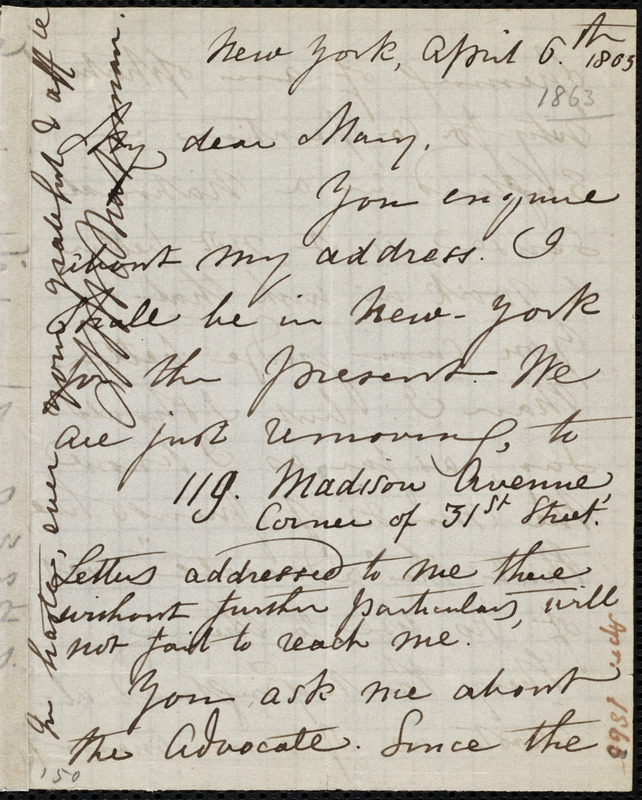 New York, April 6.th 1863
1863
My dear Mary,
You enquire
about my address. I
shall be in New-York
for the present. We
are just removing, to
119. Madison Avenue,
Corner of 31st Street.
Letters addressed to me there
without further particulars, will
not fail to reach me.
You ask me about
the Advocate. Since the
In haste, ever your grateful & aff
Apr 1863
'50